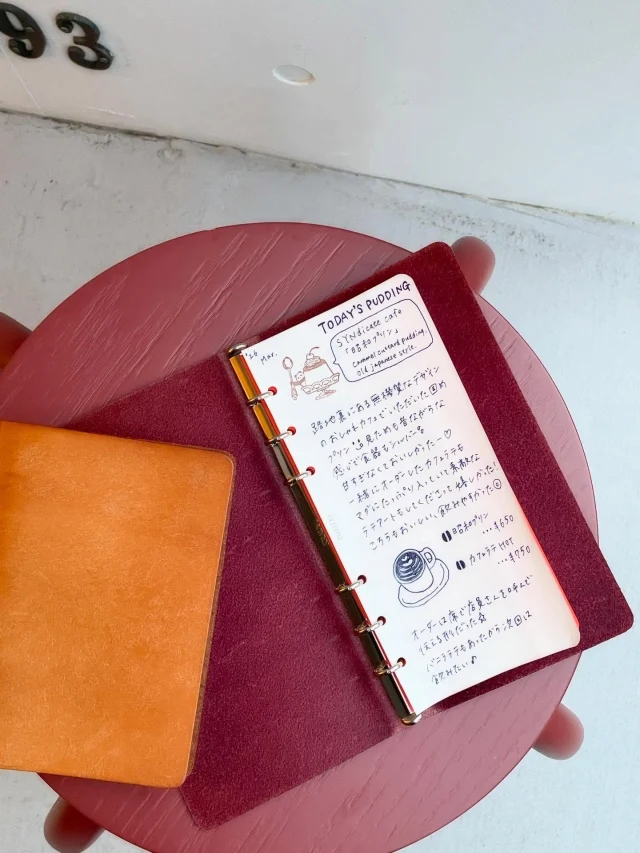 93
'26 Mar.
TODAY'S PUDDING
SYNdicate cafe
「昭和プリン」
caramel custard pudding.
Old japanese style.
路地裏にある無機質なデザイン
のおしゃれカフェでいただいた固め
プリン 見ためも昔ながらな
感じで食器もシルバー
甘すぎなくておいしかったー♡
一緒にオーダーしたカフェラテも
マグにたっぷり入っていて素敵な
ラテアートもしてくださって嬉しかった!
こちらもおいしい、飲みやすかった
昭和プリン
...¥650
カフェラテ HOT
...¥750
オーダーは席で店員さんを呼んで
伝える形だった☆
バニララテもあったから次回は
飲みたい♪